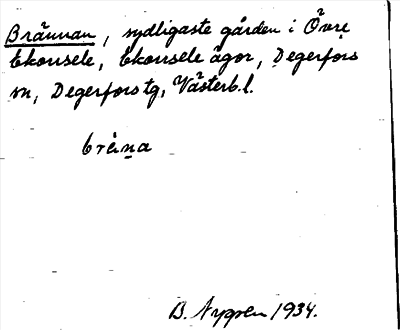 Brännan, sydligaste gården i Övre
Ekonsele, Ekonsele ägor, Degerfors
sn, Degerfors tg, Västerb.l.
brèna
B. Nygren 1934.